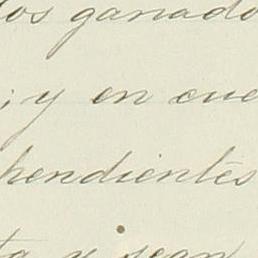 los ganado
; y en cue
pendientes
ta y sean